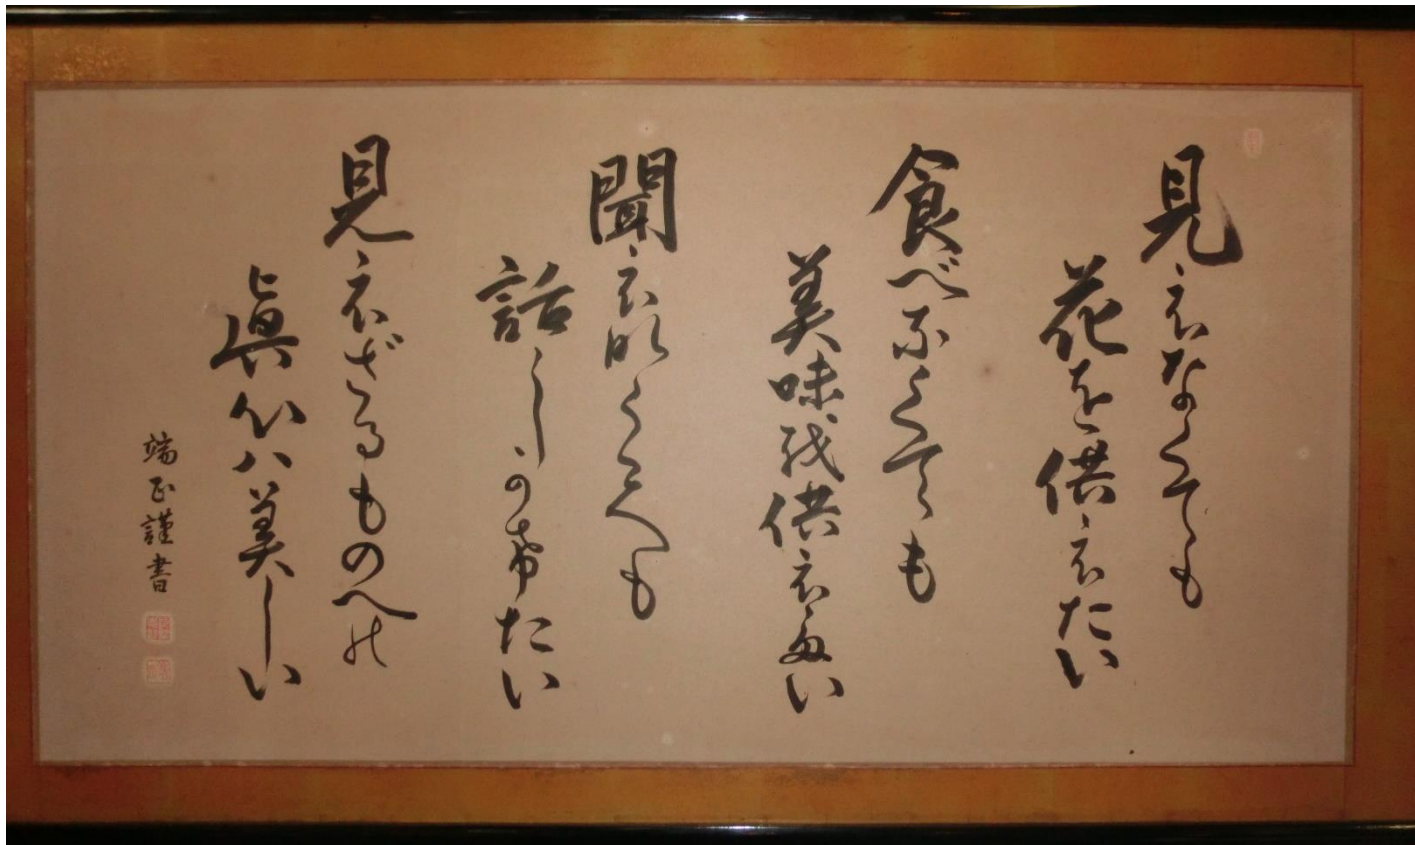 見えなくても
花を供えたい
食べなくても
美味を供えたい
聞えなくても
話しかけたい
見えざるものへの
眞心ハ美しい
端正謹書